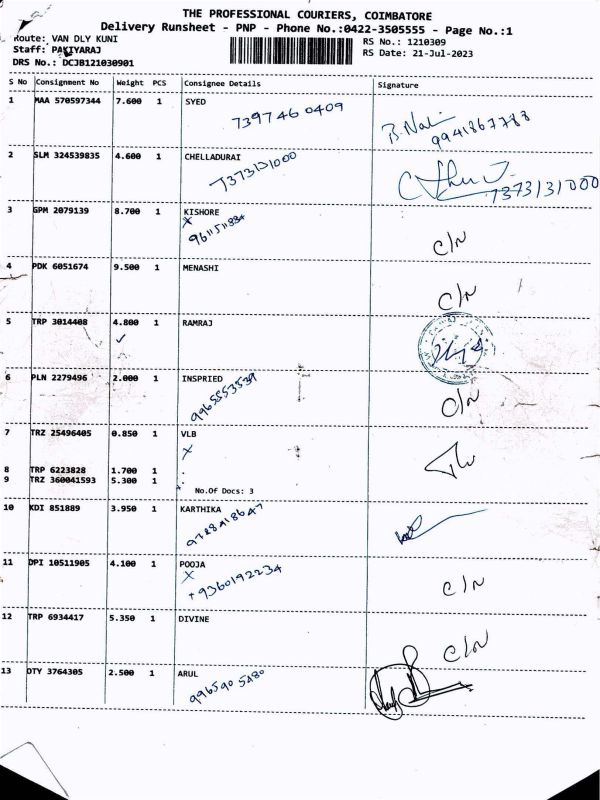 THE PROFESSIONAL COURIERS, COIMBATORE
Delivery Runsheet - PNP - Phone No.:0422-3505555 - Page No.:1
Route: VAN DLY KUNI
RS No.: 1210309
Staff: PAKIYARAJ
RS Date: 21-Jul-2023
DRS No.: DCJB121030901
S No Consignment No Weight PCS Consignee Details Signature
1 MAA 570597344 7.600 1 SYED
7397460409
B.Nali
9941867788
2 SLM 324539835 4.600 1 CHELLADURAI
7373131000
7373131000
3 GPM 2079139 8.700 1 KISHORE
x
C/N
4 PDK 6051674 9.500 1 MENASHI
C/N
5 TRP 3014408 4.800 1 RAMRAJ
✓
6 PLN 2279496 2.000 1 INSPRIED
9965553539
C/N
7 TRZ 25496405 0.850 1 VLB
x
8 TRP 6223828 1.700 1
9 TRZ 360041593 5.300 1
No.Of Docs: 3
10 KDI 851889 3.950 1 KARTHIKA
11 DPI 10511905 4.100 1 POOJA
x
+9360192234
C/N
12 TRP 6934417 5.350 1 DIVINE
C/N
13 OTY 3764305 2.500 1 ARUL
9965905480